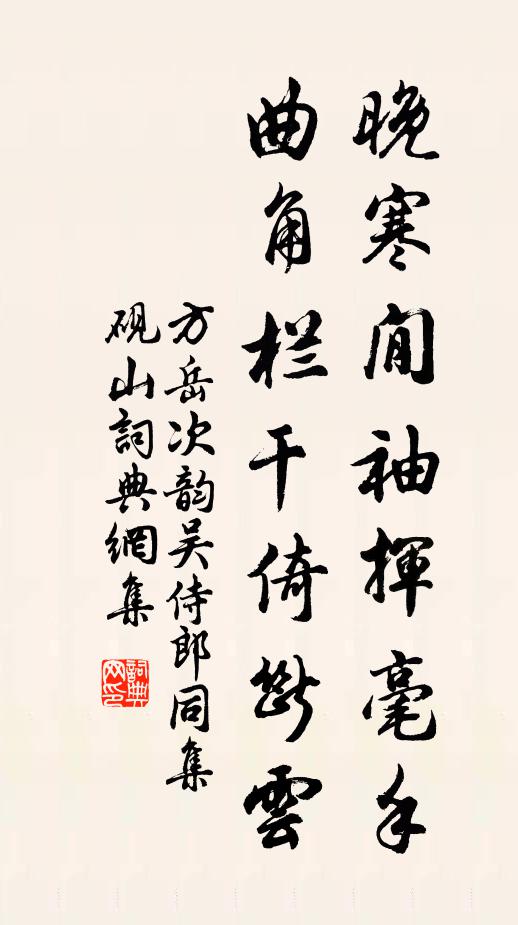 晚寒閒袖揮毫手
曲角栏干倚斷雲
方岳次韵吴侍郎同集
砚山詞典網集
詞典网印